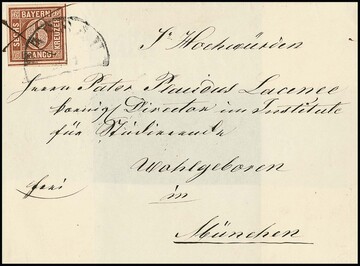 BAYERN
SECHS
KREUZER
FRANCO
Sr Hochwürden
Herrn Pater Placidus Lacense
königl Director im Institute
für Studierende
Wohlgeboren
frei
in
München